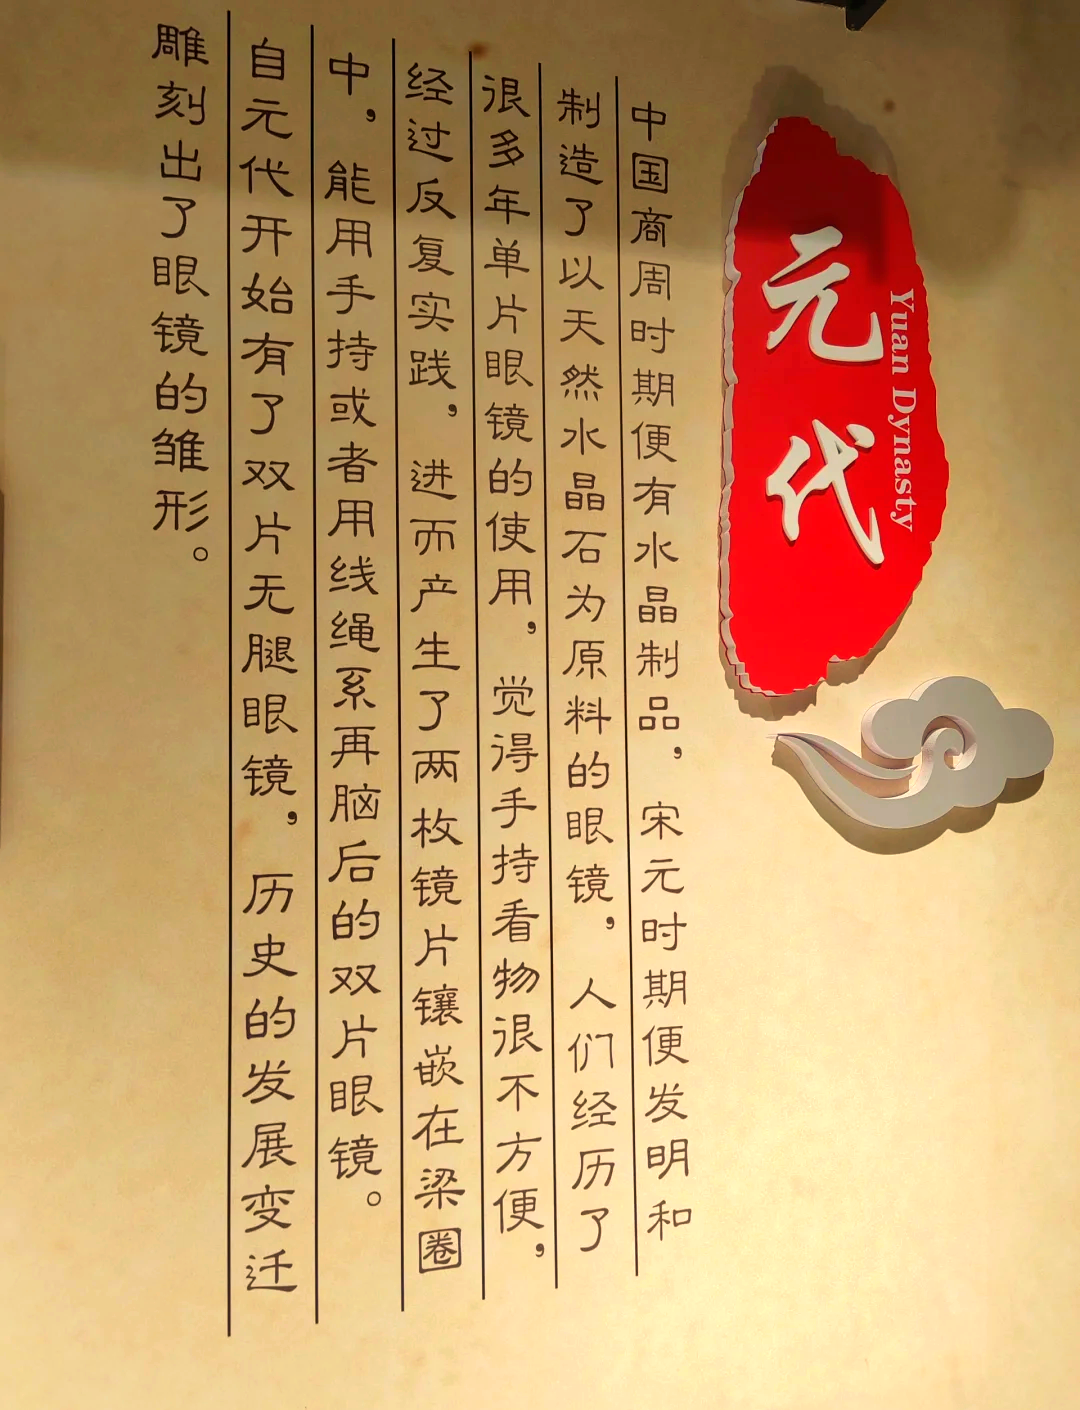 元代
Yuan Dynasty
中国商周时期便有水晶制品，宋元时期便发明和
制造了以天然水晶石为原料的眼镜，人们经历了
很多年单片眼镜的使用，觉得手持看物很不方便，
经过反复实践，进而产生了两枚镜片镶嵌在梁圈
中，能用手持或者用线绳系再脑后的双片眼镜。
自元代开始有了双片无腿眼镜，历史的发展变迁
雕刻出了眼镜的雏形。